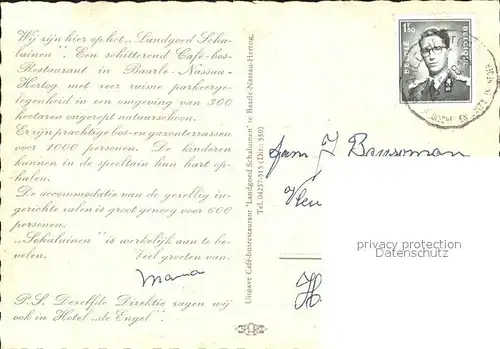 Wij zijn hier op het „Landgoed Scha-
luinen". Een schitterend Café-bos-
Restaurant in Baarle-Nassau-
Hertog met zeer ruime parkeerge-
legenheid in een omgeving van 300
hectaren ongerept natuurschoon.
Er zijn prachtige bos- en gazonterrassen
voor 1000 personen. De kinderen
kunnen in de speeltuin hun hart op-
halen.
De accommodatie van de gezellig in-
gerichte zalen is groot genoeg voor 600
personen.
„Schaluinen" is werkelijk aan te be-
velen. Veel groeten van.
Mama
P.S. Derelfde Direktie zagen wij
ook in Hotel „de Engel".
Uitgave Café-bosrestaurant "Landgoed Schaluinen" te Baarle-Nassau-Hertog.
Tel. 04257-515
1F50
BELGIE
BELGIQUE
Fam J
privacy protection
Datenschutz